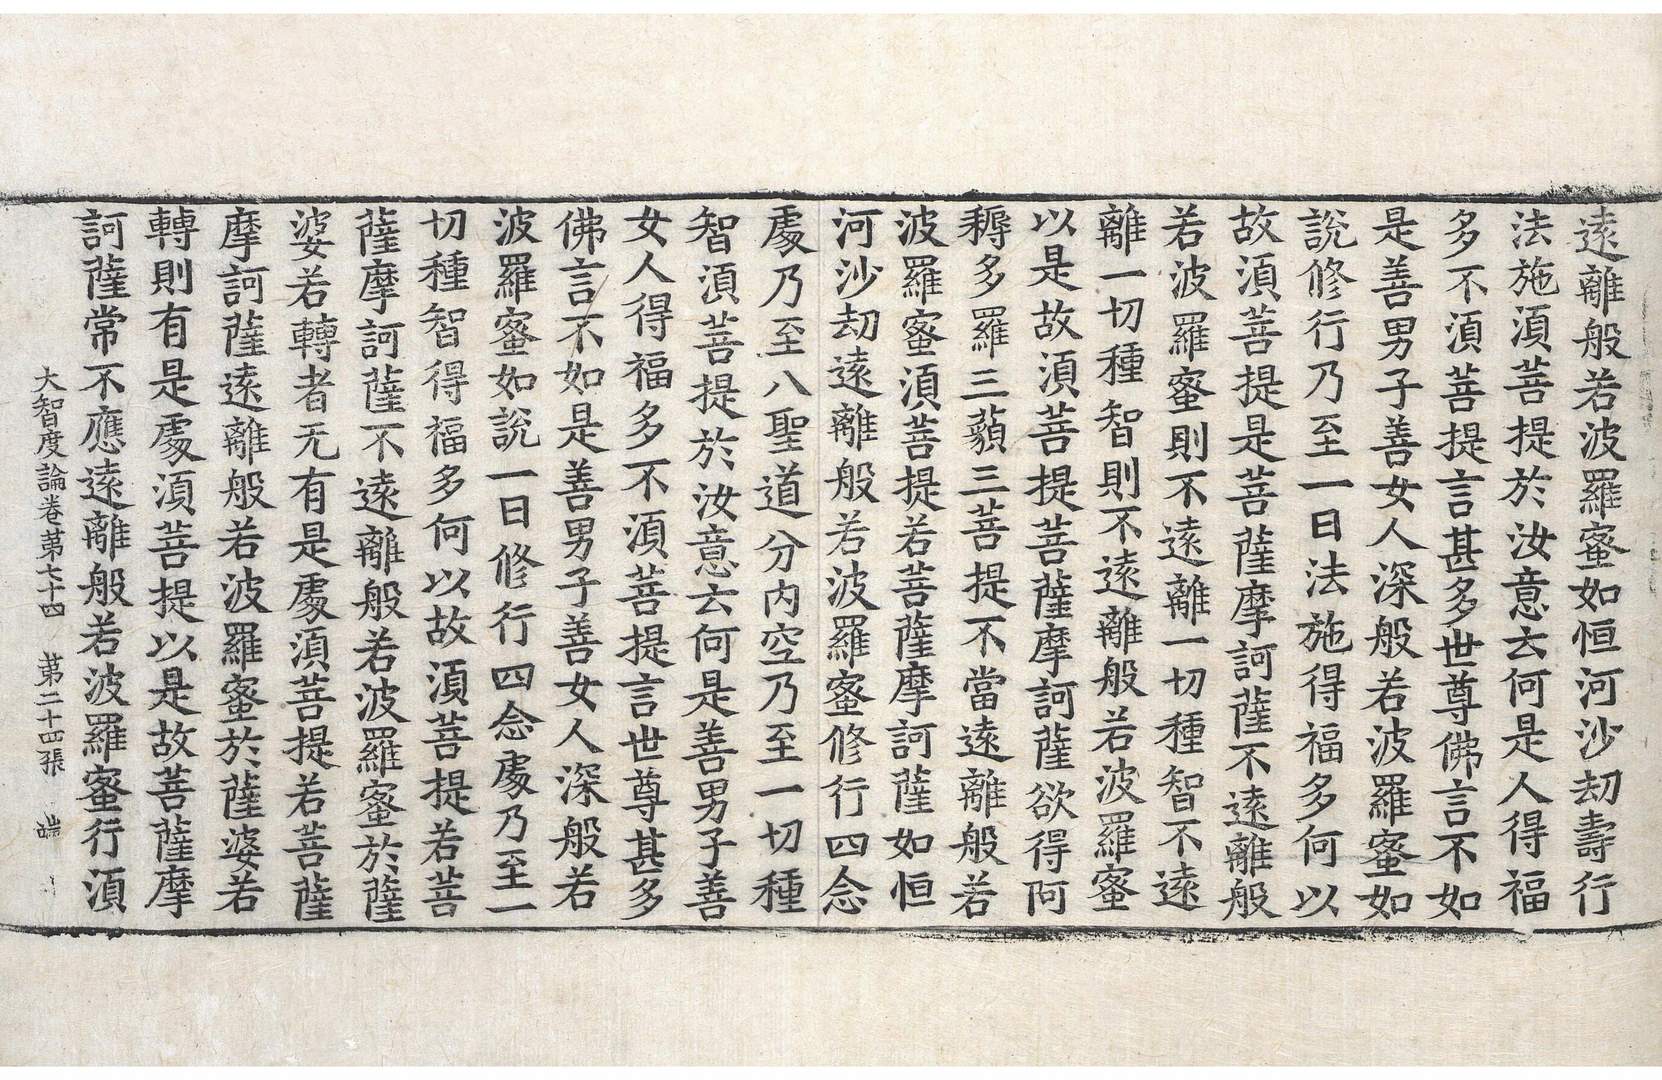 遠離般若波羅蜜如恒河沙劫壽行
法施湏菩提於汝意云何是人得福
多不湏菩提言甚多世尊佛言不如
是善男子善女人深般若波羅蜜如
說修行乃至一日法施得福多何以
故湏菩提是菩薩摩訶薩不遠離般
若波羅蜜則不遠離一切種智不遠
離一切種智則不遠離般若波羅蜜
以是故湏菩提菩薩摩訶薩欲得阿
耨多羅三藐三菩提不當遠離般若
波羅蜜湏菩提若菩薩摩訶薩如恒
河沙劫遠離般若波羅蜜修行四念
處乃至八聖道分内空乃至一切種
智湏菩提於汝意云何是善男子善
女人得福多不湏菩提言世尊甚多
佛言不如是善男子善女人深般若
波羅蜜如說一日修行四念處乃至一
切種智得福多何以故湏菩提若菩
薩摩訶薩不遠離般若波羅蜜於薩
婆若轉者无有是處湏菩提若菩薩
摩訶薩遠離般若波羅蜜於薩婆若
轉則有是處湏菩提以是故菩薩摩
訶薩常不應遠離般若波羅蜜行湏
大智度論卷第七十四 第二十四張